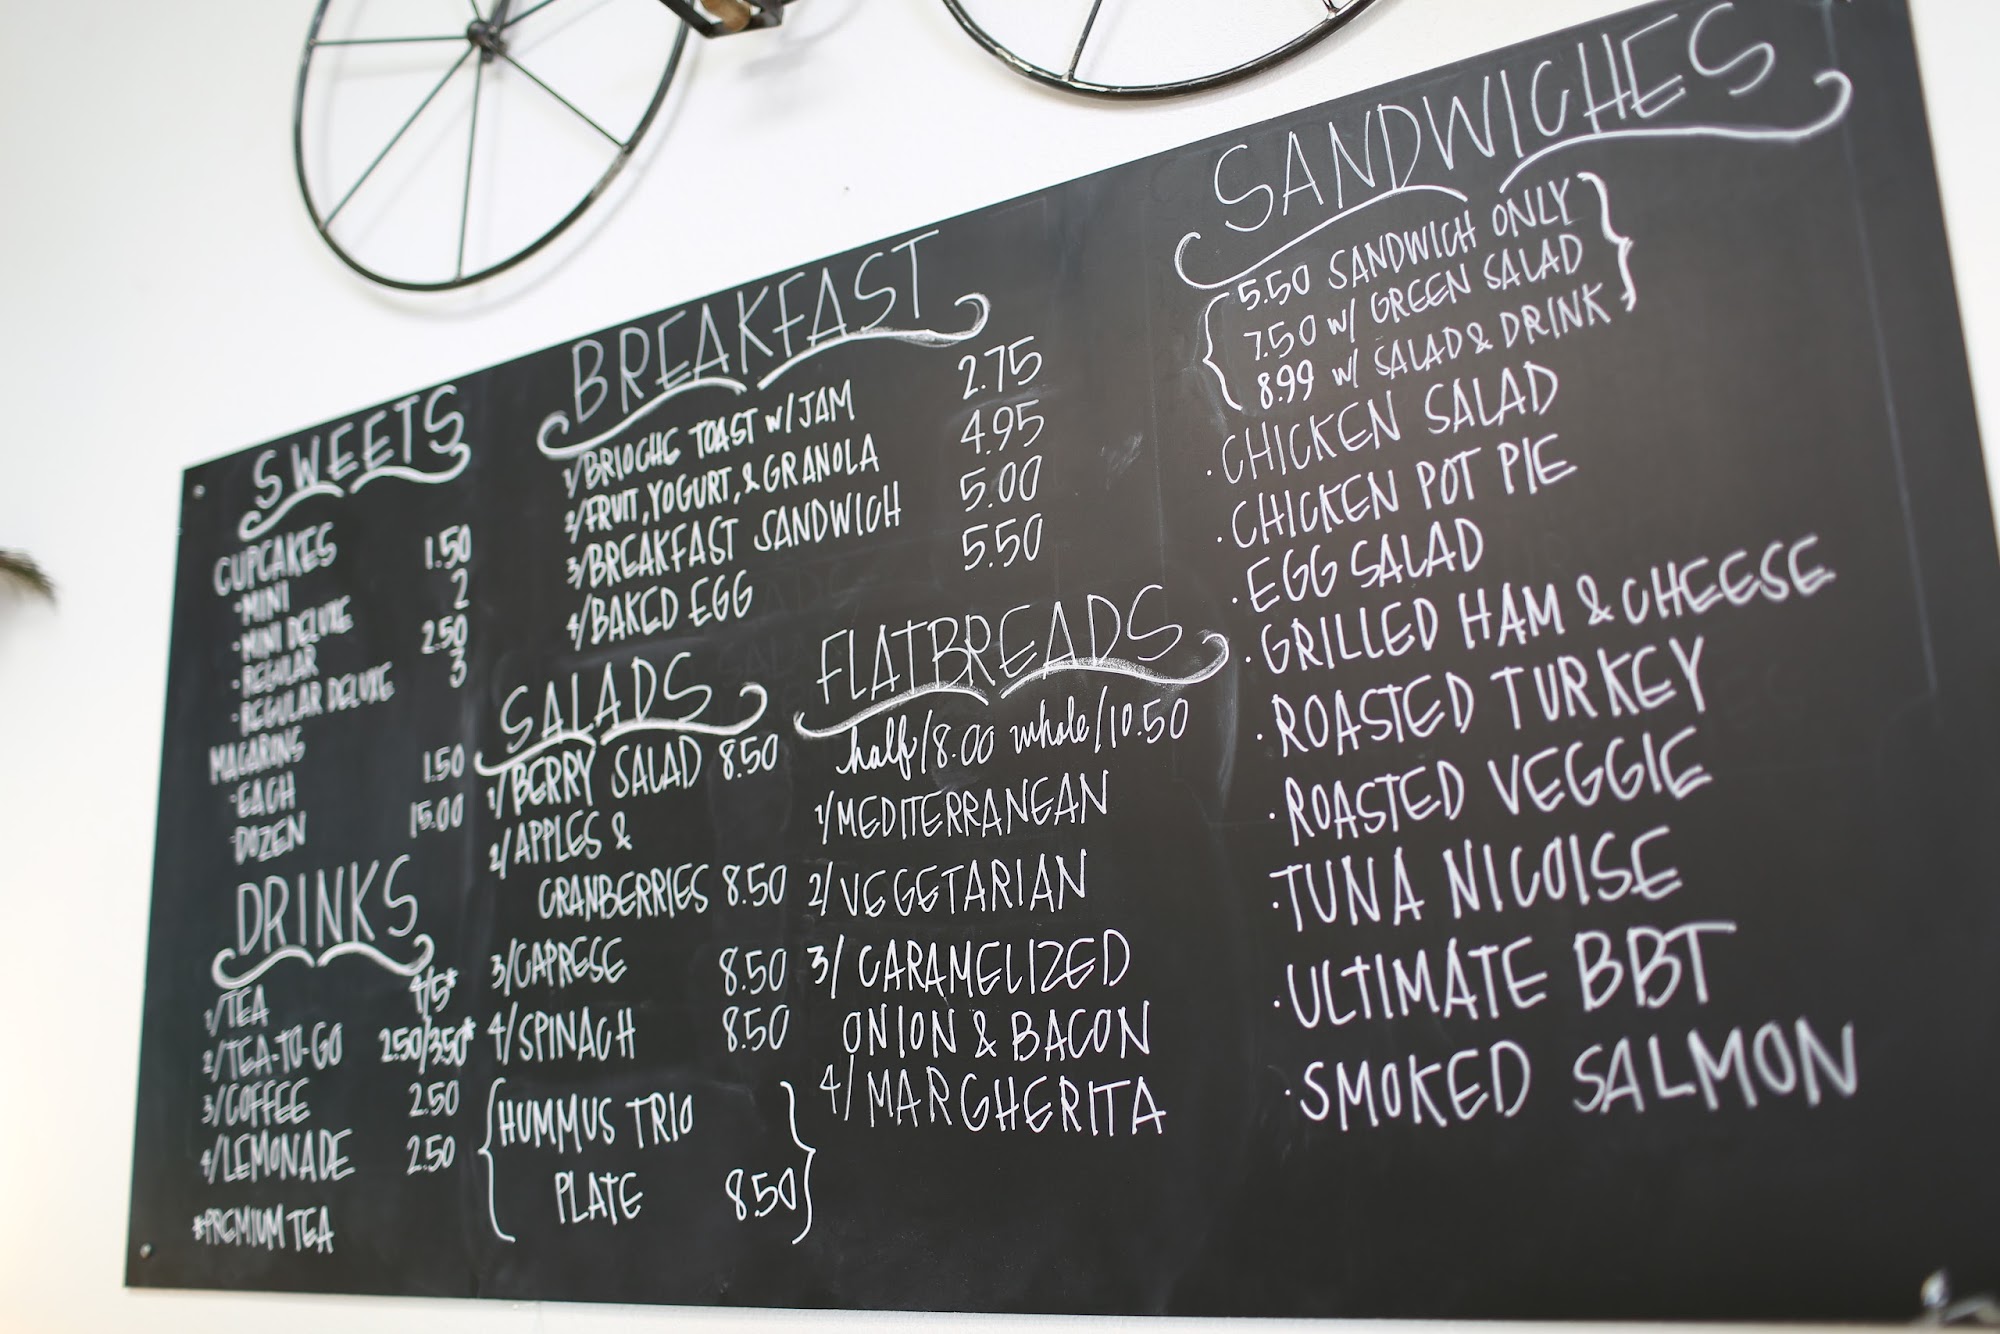 SWEETS
CUPCAKES
·MINI 1.50
·MINI DELUXE 2
·REGULAR 2.50
·REGULAR DELUXE 3
MACARONS
·EACH 1.50
·DOZEN 15.00
DRINKS
1/TEA 4/5*
2/TEA-TO-GO 2.50/3.50*
3/COFFEE 2.50
4/LEMONADE 2.50
*PREMIUM TEA
BREAKFAST
1/BRIOCHE TOAST w/JAM 2.75
2/FRUIT, YOGURT, & GRANOLA 4.95
3/BREAKFAST SANDWICH 5.00
4/BAKED EGG 5.50
SALADS
1/BERRY SALAD 8.50
2/APPLES &
CRANBERRIES 8.50
3/CAPRESE 8.50
4/SPINACH 8.50
{HUMMUS TRIO
PLATE 8.50}
FLATBREADS
half/8.00 whole/10.50
1/MEDITERRANEAN
2/VEGETARIAN
3/CARAMELIZED
ONION & BACON
4/MARGHERITA
SANDWICHES
{5.50 SANDWICH ONLY
7.50 w/ GREEN SALAD
8.99 w/ SALAD & DRINK}
·CHICKEN SALAD
·CHICKEN POT PIE
·EGG SALAD
·GRILLED HAM & CHEESE
·ROASTED TURKEY
·ROASTED VEGGIE
·TUNA NICOISE
·ULTIMATE BBT
·SMOKED SALMON